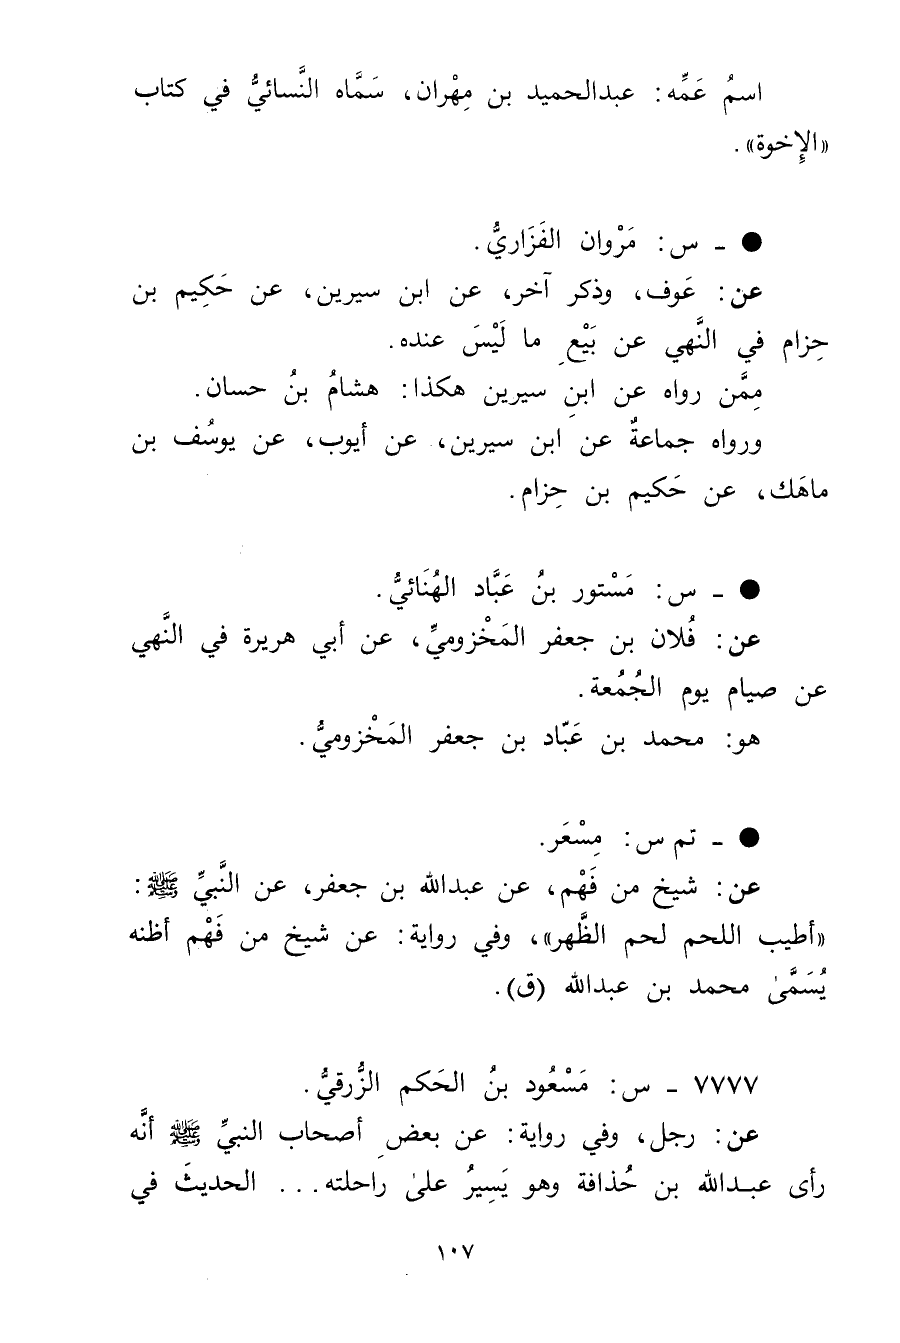 اسمُ عَمِّه: عبدالحميد بن مِهْران، سَمَّاه النَّسائيُّ في كتاب
«الإِخوة».
● ـ س: مَرْوان الفَزَاريُّ.
عن: عَوف، وذكر آخر، عن ابن سيرين، عن حَكِيم بن
حِزام في النَّهي عن بَيْعِ ما لَيْسَ عنده.
مِمَّن رواه عن ابنِ سيرين هكذا: هشامُ بنُ حسان.
ورواه جماعةٌ عن ابن سيرين، عن أيوب، عن يوسُف بن
ماهَك، عن حَكيم بن حِزام.
● ـ س: مَسْتور بنُ عَبَّاد الهُنَائيُّ.
عن: فُلان بن جعفر المَخْزوميِّ، عن أبي هريرة في النَّهي
عن صيام يوم الجُمُعة.
هو: محمد بن عَبّاد بن جعفر المَخْزوميُّ.
● ـ تم س: مِسْعَر.
عن: شيخ من فَهْم، عن عبدالله بن جعفر، عن النَّبيِّ ﷺ:
«أطيب اللحم لحم الظَّهر»، وفي رواية: عن شيخ من فَهْم أظنه
يُسَمَّىٰ محمد بن عبدالله (ق).
٧٧٧٧ ـ س: مَسْعُود بنُ الحَكم الزُّرقيُّ.
عن: رجل، وفي رواية: عن بعضِ أصحاب النبيِّ ﷺ أنَّه
رأى عبدالله بن حُذافة وهو يَسِيرُ علىٰ راحلته... الحديثَ في
١٠٧